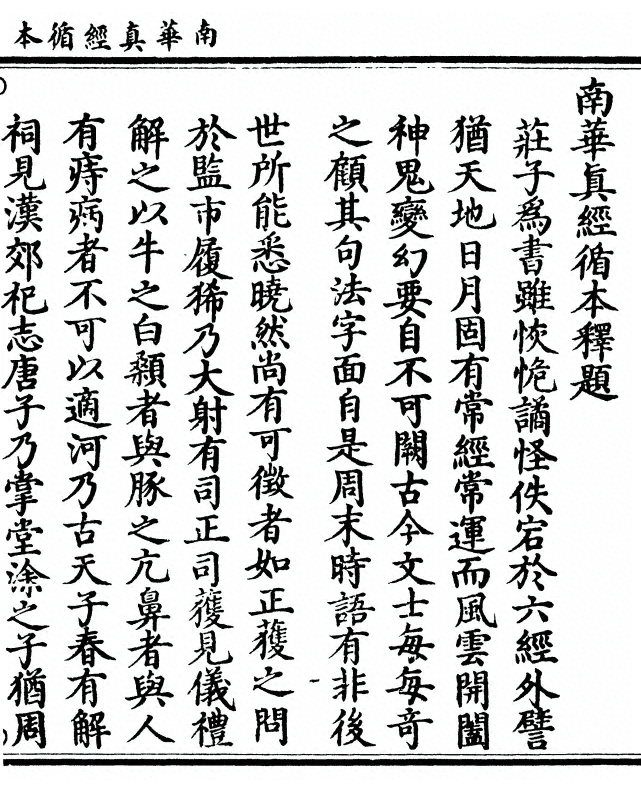 南華真經循本
南華眞經循本釋題
莊子爲書雖恢恑譎怪佚宕於六經外譬
猶天地日月固有常經常運而風雲開闔
神鬼變幻要自不可闕古今文士每每奇
之顧其句法字面自是周末時語有非後
世所能悉曉然尚有可徵者如正獲之問
於監市履狶乃大射有司正司獲見儀禮
解之以牛之白顙者與豚之亢鼻者與人
有痔病者不可以適河乃古天子春有解
祠見漢郊祀志唐子乃掌堂涂之子猶周